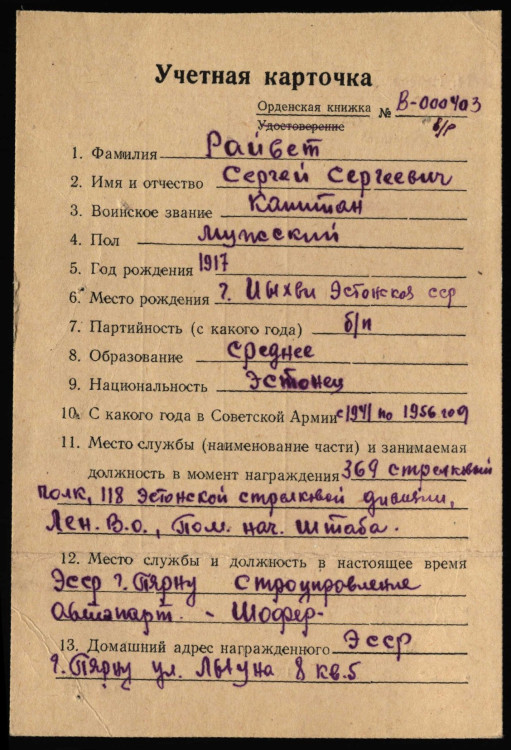 Учетная карточка
Орденская книжка № В-000403
Удостоверение б/р
1. Фамилия Райвет
2. Имя и отчество Сергей Сергеевич
3. Воинское звание Капитан
4. Пол мужской
5. Год рождения 1917
6. Место рождения г. Йыхви Эстонская сср
7. Партийность (с какого года) б/п
8. Образование среднее
9. Национальность Эстонец
10. С какого года в Советской Армии с 1941 по 1956 год
11. Место службы (наименование части) и занимаемая
должность в момент награждения 369 стрелковый
полк, 118 Эстонской стрелковой дивизии,
Лен. В.о., Пом. нач. штаба.
12. Место службы и должность в настоящее время
Эсср г. Пярну Стройуправление
Автопарт - Шофер-
13. Домашний адрес награжденного Эсср
г. Пярну ул. Лыуна 8 кв. 5